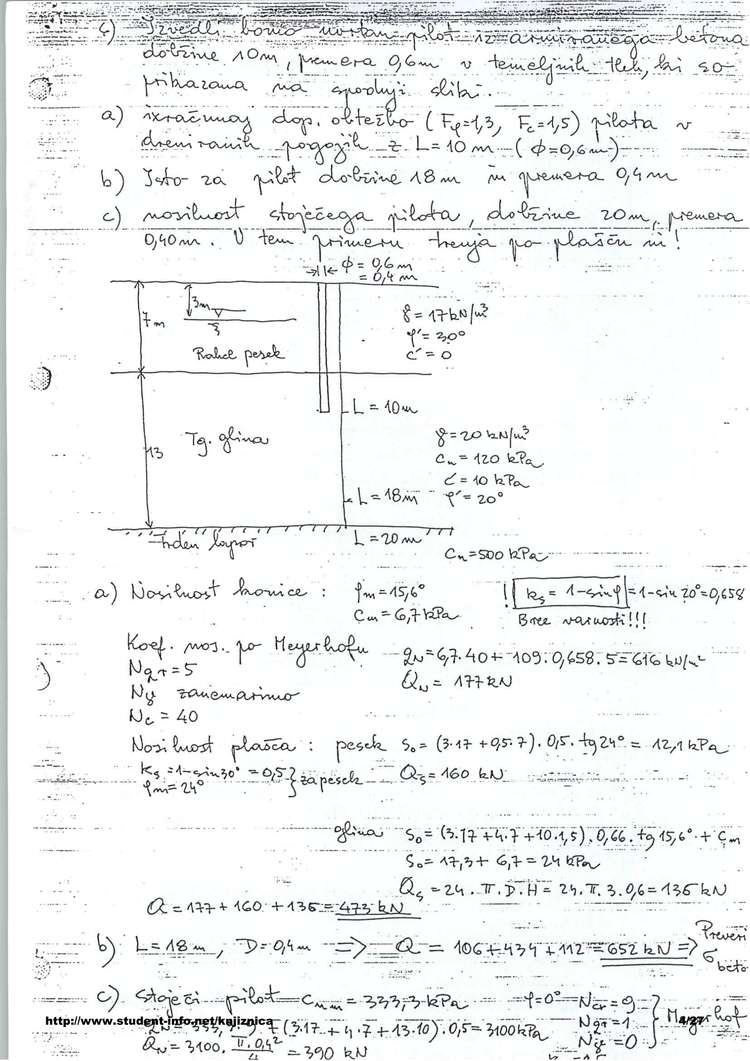 c) Izvedli bomo uvrtan pilot iz armiranega betona
dolžine 10m, premera 0,6m v temeljnih tleh, ki so
prikazana na spodnji sliki.
a) izračunaj dop. obtežbo (Fφ=1,3, Fc=1,5) pilota v
dreniranih pogojih z L=10m (Φ=0,6m)
b) Isto za pilot dolžine 18m in premera 0,4m
c) nosilnost stoječega pilota, dolžine 20m, premera
0,40m. V tem primeru trenja po plašču ni!
Φ = 0,6m
= 0,4m
3m
7m
Rahel pesek
γ = 17 kN/m³
φ' = 30°
c' = 0
L = 10m
Tg. glina
13
γ = 20 kN/m³
cu = 120 kPa
c' = 10 kPa
L = 18m
φ' = 20°
Trden lapor
L = 20m
Cu = 500 kPa
a) Nosilnost konice : φm = 15,6°
Cm = 6,7kPa
! ks = 1-sinφ = 1-sin 20° = 0,658
Brez varnosti!!!
Koef. nos. po Meyerhofu
qN = 6,7·40 + 109·0,658·5 = 616 kN/m²
Nqr = 5
QN = 177 kN
Nγ zanemarimo
Nc = 40
Nosilnost plašča : pesek So = (3·17 + 0,5·7)·0,5·tg24° = 12,1 kPa
ks = 1-sin30° = 0,5 } za pesek
φm = 24°
Qs = 160 kN
glina So = (3·17 + 4·7 + 10·1,5)·0,66·tg 15,6° + Cm
So = 17,3 + 6,7 = 24 kPa
Qs = 24·π·D·H = 24·π·3·0,6 = 136 kN
Q = 177 + 160 + 136 = 473 kN
b) L = 18m, D = 0,4m => Q = 106 + 434 + 112 = 652 kN =>
Preveri
σ beto
c) Stoječi pilot Cum = 333,3 kPa φ=0° Ncr = 9
Nqr = 1
Nγ = 0
Meyerhof
http://www.student-info.net/knjiznica
(3·17 + 4·7 + 13·10)·0,5 = 3100 kPa
4/27
QN = 3100· π·0,4²/4 = 390 kN